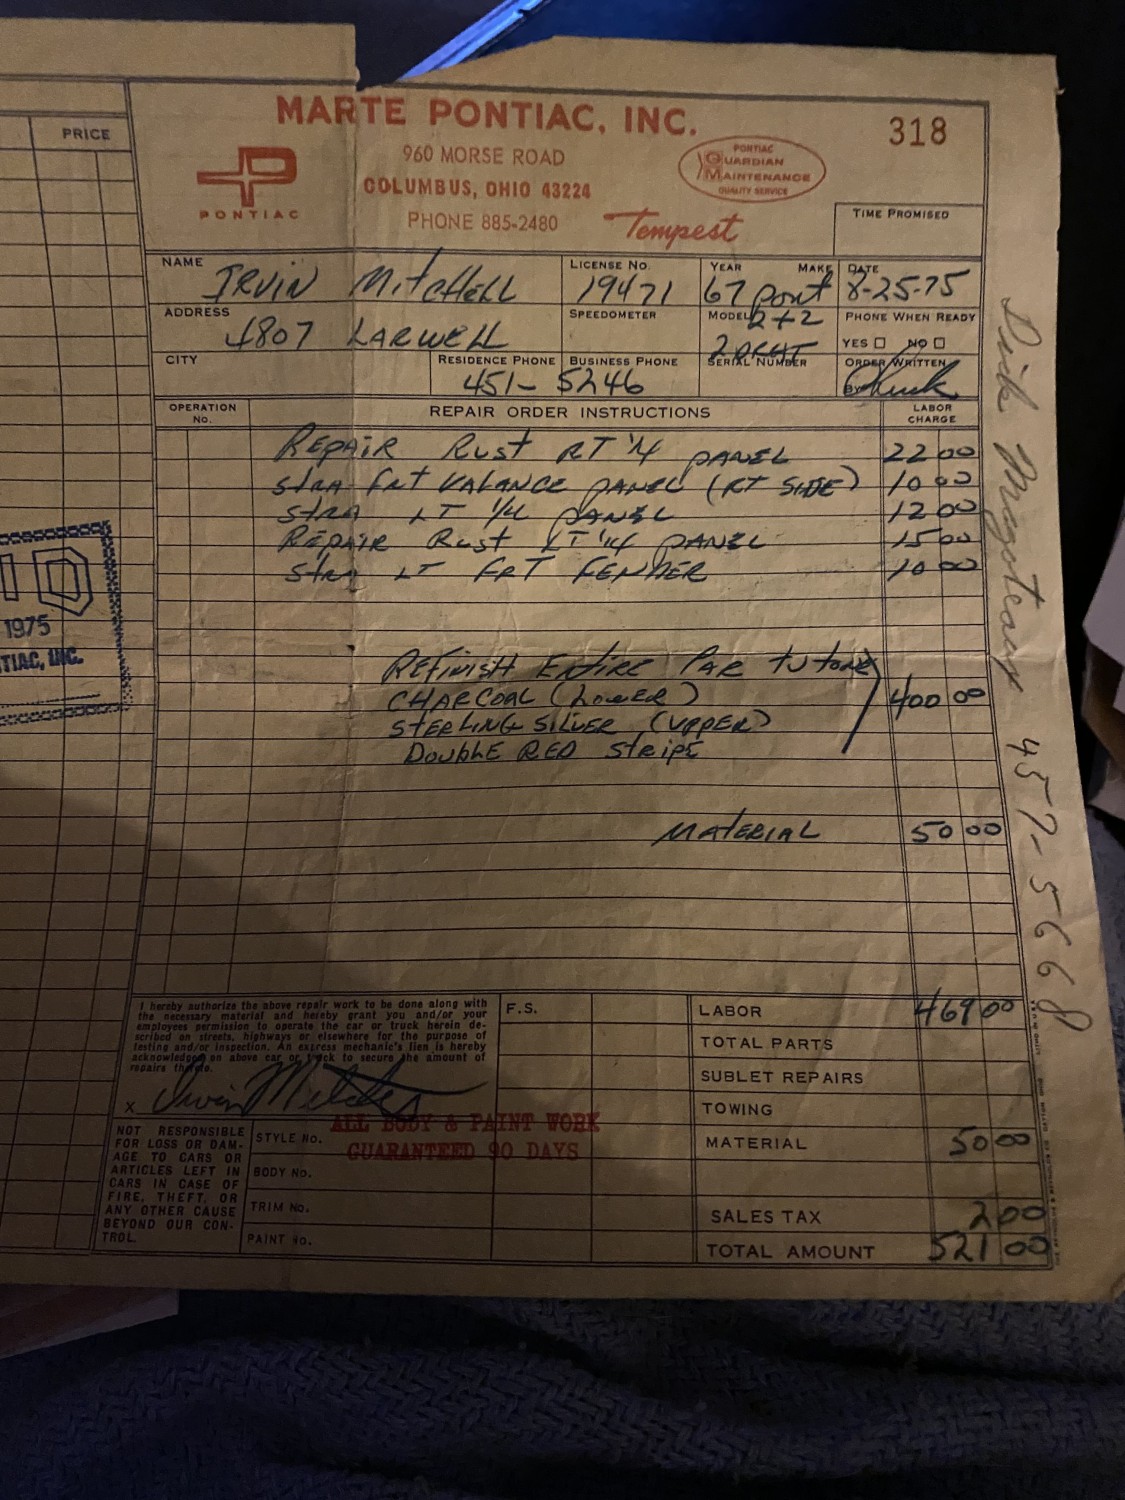 PRICE
MARTE PONTIAC, INC.
960 MORSE ROAD
COLUMBUS, OHIO 43224
PHONE 885-2480
PONTIAC
PONTIAC
GUARDIAN
MAINTENANCE
QUALITY SERVICE
Tempest
318
TIME PROMISED
NAME IRVIN MITCHELL
LICENSE NO. 19471
YEAR MAKE 67 Pont
DATE 8-25-75
ADDRESS 4807 LARWELL
SPEEDOMETER
MODEL 2+2
PHONE WHEN READY
YES NO
CITY
RESIDENCE PHONE BUSINESS PHONE
451-5246
SERIAL NUMBER
ORDER WRITTEN
BY Chuck
OPERATION
NO.
REPAIR ORDER INSTRUCTIONS
LABOR
CHARGE
REPAIR RUST RT 1/4 PANEL 22 00
STRA FRT VALANCE PANEL (RT SIDE) 10 00
STRA LT 1/4 PANEL 12 00
REPAIR RUST LT 1/4 PANEL 15 00
STRA LT FRT FENDER 10 00
1975
TIAC, INC.
REFINISH ENTIRE CAR TU TONE
CHARCOAL (LOWER) 400 00
STERLING SILVER (UPPER)
DOUBLE RED STRIPE
MATERIAL 50 00
457-5668
I hereby authorize the above repair work to be done along with
the necessary material and hereby grant you and/or your
employees permission to operate the car or truck herein de-
scribed on streets, highways or elsewhere for the purpose of
testing and/or inspection. An express mechanic's lien is hereby
acknowledged on above car or truck to secure the amount of
repairs thereto.
X Irvin Mitchell
F.S.
LABOR 469 00
TOTAL PARTS
SUBLET REPAIRS
TOWING
MATERIAL 50 00
SALES TAX 2 00
TOTAL AMOUNT 521 00
ALL BODY & PAINT WORK
GUARANTEED 90 DAYS
NOT RESPONSIBLE
FOR LOSS OR DAM-
AGE TO CARS OR
ARTICLES LEFT IN
CARS IN CASE OF
FIRE, THEFT, OR
ANY OTHER CAUSE
BEYOND OUR CON-
TROL.
STYLE NO.
BODY NO.
TRIM NO.
PAINT NO.